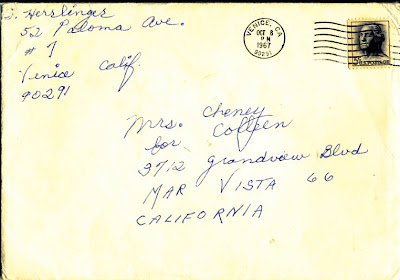 J. Herslinger
52 Paloma Ave.
# 7
Venice Calif.
90291
VENICE, CA
OCT 8
PM
1967
90291
5¢ U.S. POSTAGE
Mrs. Cheney
for Colleen
3712 Grandview Blvd
MAR VISTA 66
CALIFORNIA